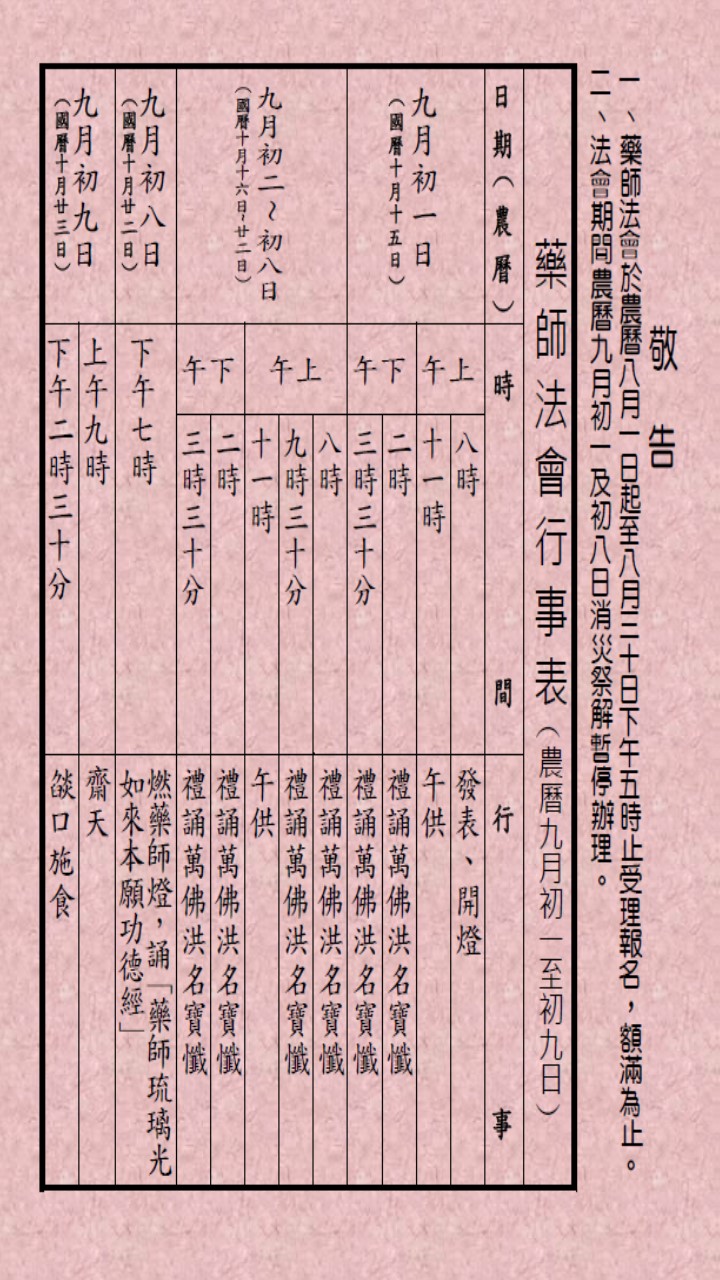 敬告
一、藥師法會於農曆八月一日起至八月三十日下午五時止受理報名，額滿為止。
二、法會期間農曆九月初一及初八日消災祭解暫停辦理。
藥師法會行事表（農曆九月初一至初九日）
日期（農曆）
時間
行事
九月初一日
（國曆十月十五日）
上午
八時
發表、開燈
十一時
午供
下午
二時
禮誦萬佛洪名寶懺
三時三十分
禮誦萬佛洪名寶懺
九月初二~初八日
（國曆十月十六日~廿二日）
上午
八時
禮誦萬佛洪名寶懺
九時三十分
禮誦萬佛洪名寶懺
十一時
午供
下午
二時
禮誦萬佛洪名寶懺
三時三十分
禮誦萬佛洪名寶懺
九月初八日
（國曆十月廿二日）
下午七時
燃藥師燈，誦「藥師琉璃光
如來本願功德經」
九月初九日
（國曆十月廿三日）
上午九時
齋天
下午二時三十分
燄口施食